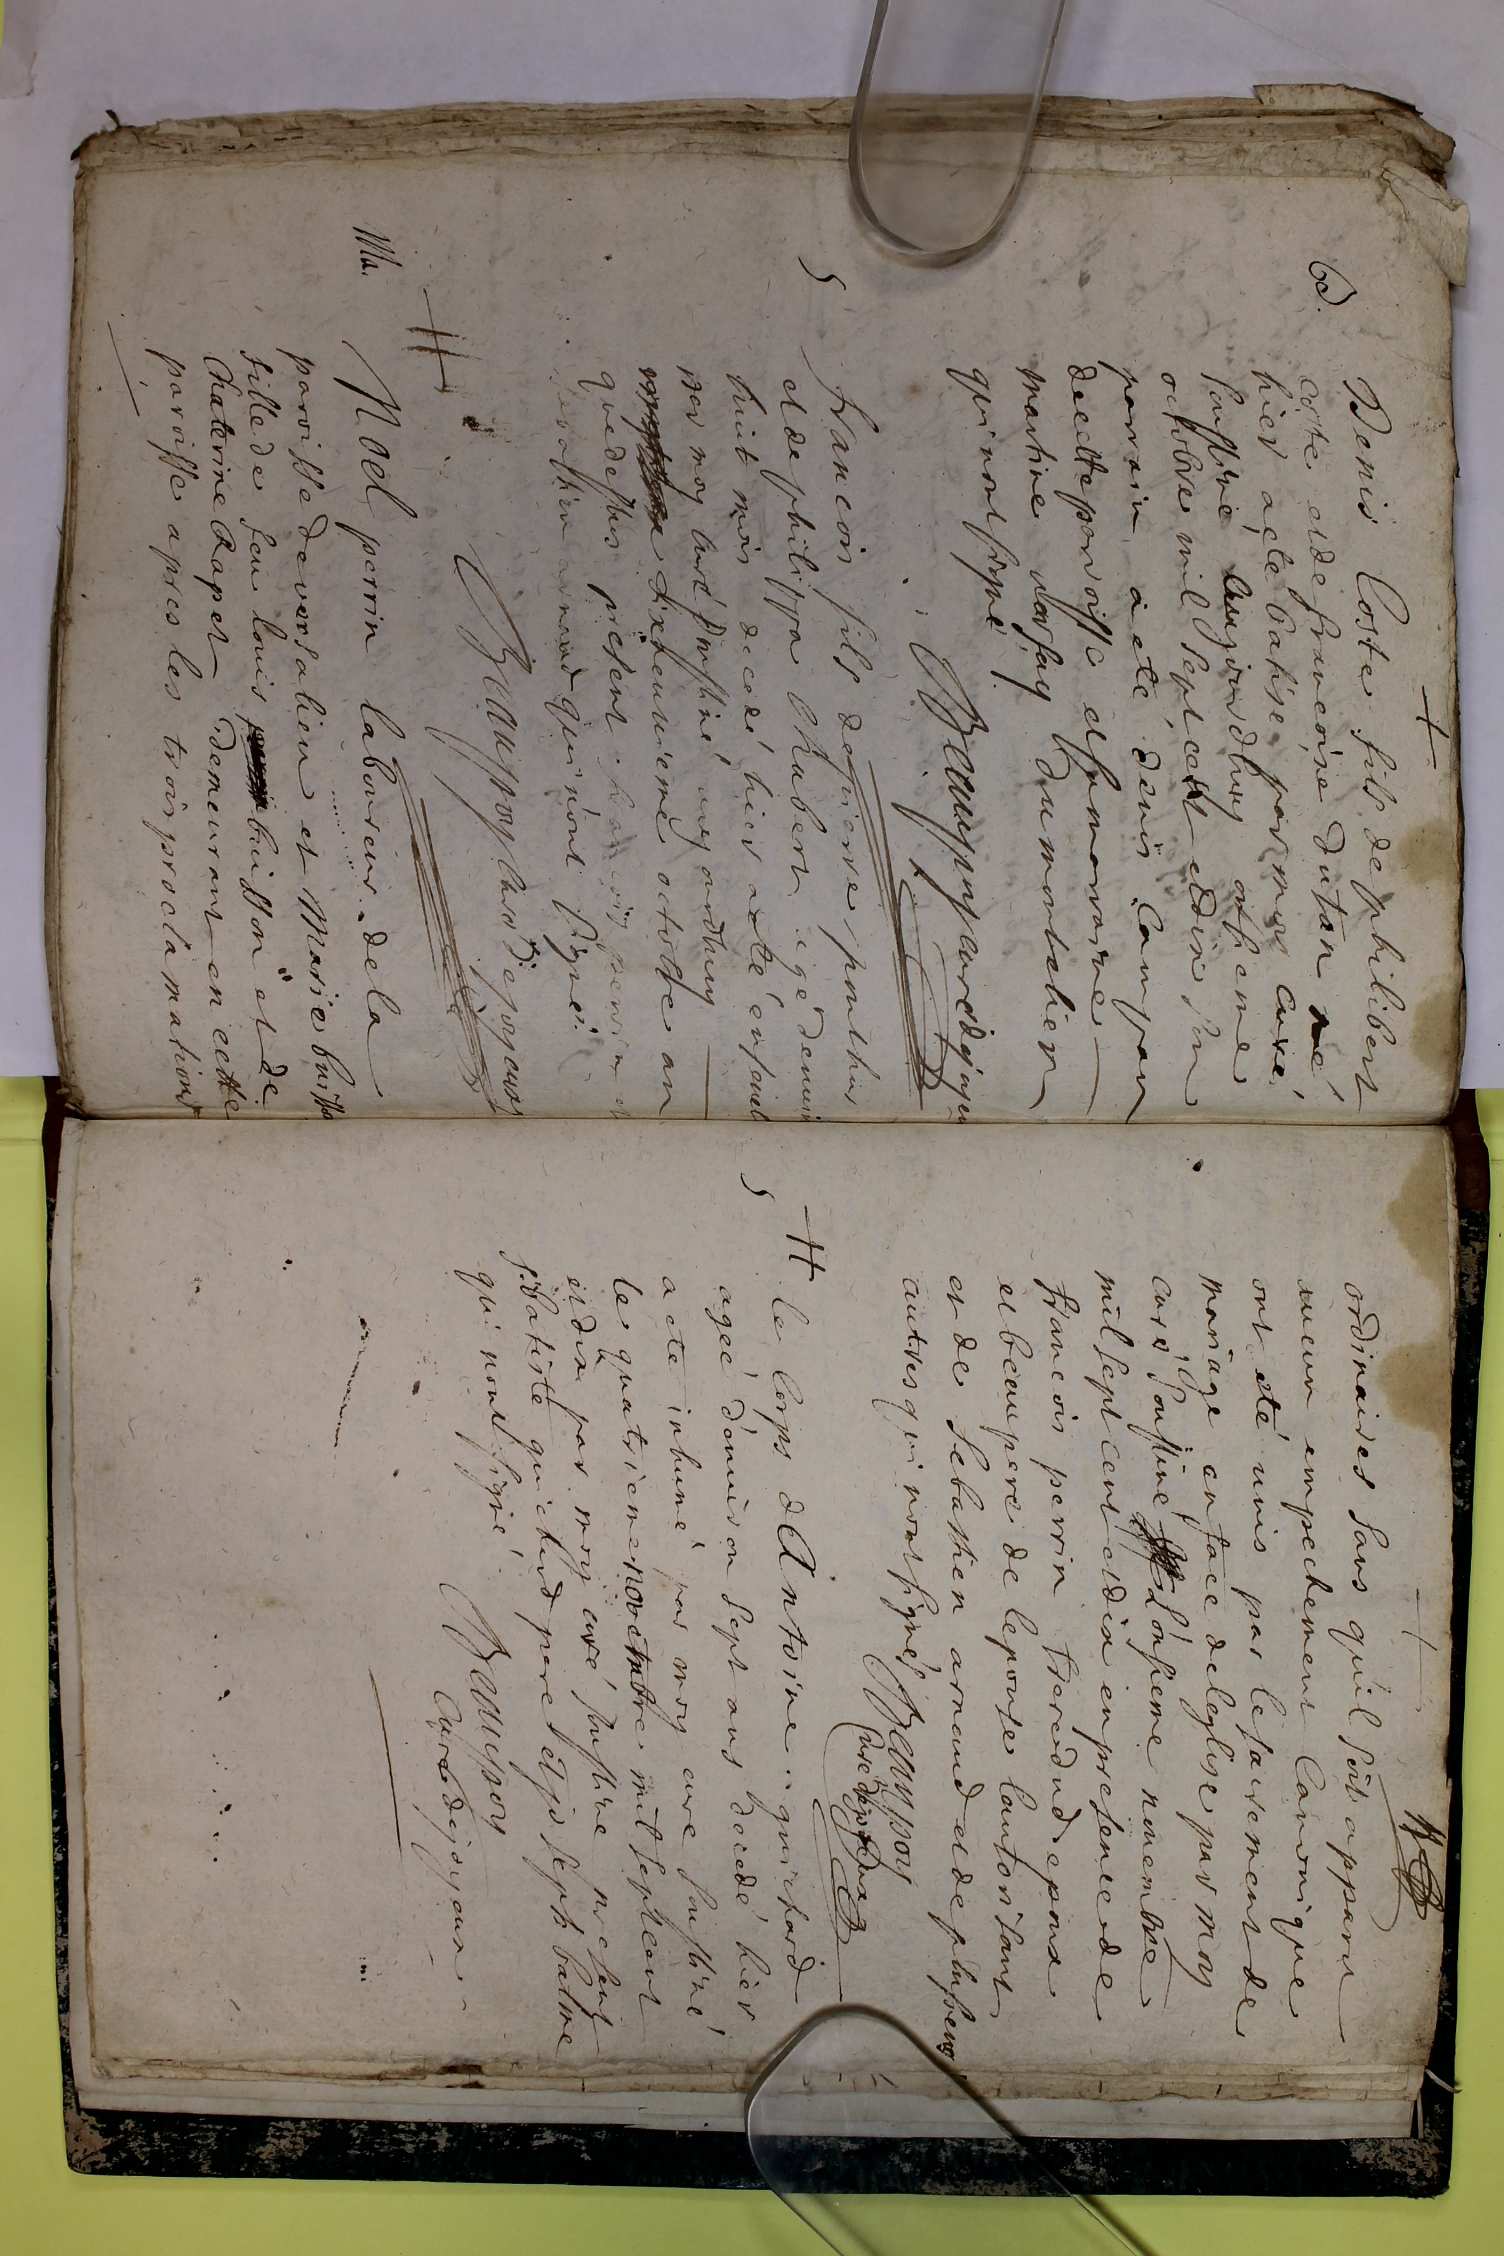 B.
Denis Coste fils de philibert
coste et de francoise dutan né
hier a eté batisé par moy curé
soussiné aujourdhuy onsieme
octobre mil sept cent et dix son
parrain a eté denis
de cette parroisse et sa marraine
martine du montchien
qui nont signé
Beauppoy curé dejoyeux
S
francois fils de pierre pouthus
et de philippa Chabert agé denviron
huit mois decedé hier a eté enseveli
par moy curé soussiné aujourdhuy
dixneuvieme octobre an
que dessus present francois perrin et
sebastien arnaud qui nont signé
Beauppoy curé de joyeux
Ma.
Noel perrin laboureur de la
parroisse de versalieu et Marie buisson
fille de feu louis buisson et de
Chaterine Rapet demeurant en cette
parroisse apres les trois proclamations
ordinaires sans qu'il soit apparu
aucun empechement Canonique
ont eté unis par le sacrement de
mariage en face de leglise par moy
curé soussiné L'onsieme novembre
mil sept cent et dix en presence de
francois perrin frere dud epoux
et beaupere de lepouse lautorisant
et de sebastien arnaud et de plusieurs
autres qui nont signé Beauppoy
curé de joyeux
S
le Corps dAntoine guichard
ageé d'environ sept ans decedé hier
a eté inhumé par moy curé soussiné
le quatrieme novembre mil sept cent
et dix par moy curé soussiné present
J. batiste guichard pere et jo sept balme
qui nont signé Beauppoy
Curé dejoyeux